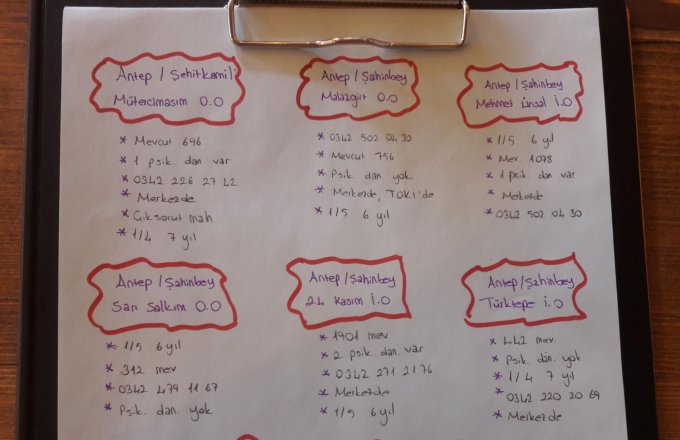 Antep / Şehitkamil
Mütercimasım O.O
* Mevcut 696
* 1 psik. dan var
* 0342 226 27 42
* Merkezde
* Gıksorut mah
* 1/4 7 yıl
Antep / Şahinbey
Malazgirt O.O
* 0342 502 04 30
* Mevcut 756
* Psik. dan yok
* Merkezde, Toki'de
* 1/5 6 yıl
Antep / Şahinbey
Mehmet Ünsal İ.O
* 1/5 6 yıl
* Mev. 1078
* 1 psik. dan var
* Merkezde
* 0342 502 04 30
Antep / Şahinbey
Sarı Salkım O.O
* 1/5 6 yıl
* 312 mev
* 0342 479 11 67
* Psik. dan yok
Antep / Şahinbey
24 Kasım İ.O
* 1901 mev
* 2 psik. dan. var
* 0342 271 21 76
* Merkezde
* 1/5 6 yıl
Antep / Şahinbey
Türktepe İ.O
* 442 mev.
* Psik. dan. yok
* 1/4 7 yıl
* 0342 220 20 69
* Merkezde